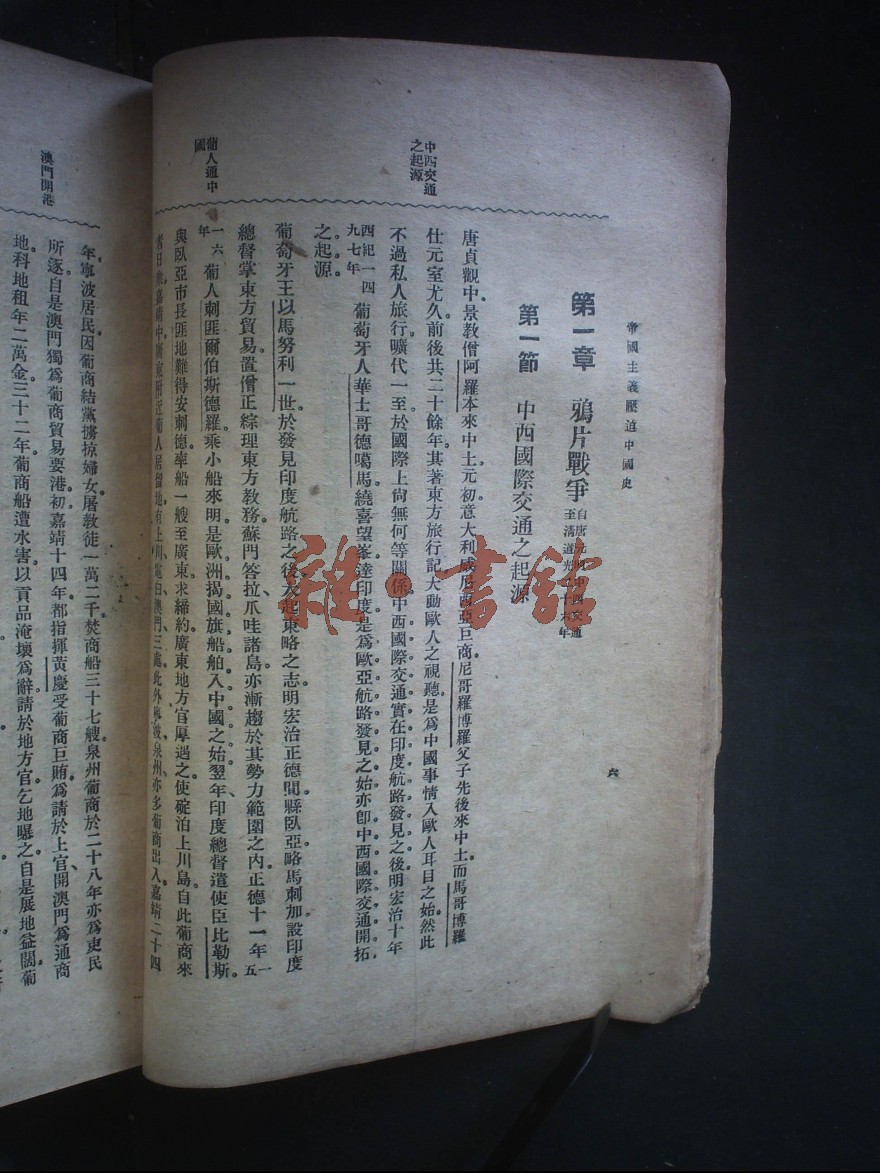 帝國主義壓迫中國史
六
第一章 鴉片戰爭 自唐元明中西交通
至清道光二十六年
第一節 中西國際交通之起源
中西交通
之起源
唐貞觀中景教僧阿羅本來中土元初意大利威尼西亞巨商尼哥羅博羅父子先後來中土而馬哥博羅
仕元室尤久前後共二十餘年其著東方旅行記大動歐人之視聽是爲中國事情入歐人耳目之始然此
不過私人旅行曠代一至於國際上尙無何等關係中西國際交通實在印度航路發見之後明宏治十年
西紀一四
九七年 葡萄牙人華士哥德噶馬繞喜望峯達印度是爲歐亞航路發見之始亦卽中西國際交通開拓
之起源
葡人通中
國
葡萄牙王以馬努利一世於發見印度航路之後大起東略之志明宏治正德間縣臥亞略馬剌加設印度
總督掌東方貿易置僧正綜理東方教務蘇門答拉爪哇諸島亦漸趨於其勢力範圍之內正德十一年一五
一六
年 葡人刺匪爾伯斯德羅乘小船來明是歐洲揭國旗船舶入中國之始翌年印度總督遣使臣比勒斯
與臥亞市長匪地難得安刺德率船一艘至廣東求締約廣東地方官厚遇之使碇泊上川島自此葡商來
者日衆嘉靖中廣東附近葡人居留地有上川電白澳門三處此外寧波泉州亦多葡商出入嘉靖二十四
澳門開港
年寧波居民因葡商結黨擄掠婦女屠教徒一萬二千焚商船三十七艘泉州葡商於二十八年亦爲吏民
所逐自是澳門獨爲葡商貿易要港初嘉靖十四年都指揮黃慶受葡商巨賄爲請於上官開澳門爲通商
地科地租年二萬金三十二年葡商船遭水害以貢品淹壞爲辭請於地方官乞地曝之自是展地益闊葡
雜·書館